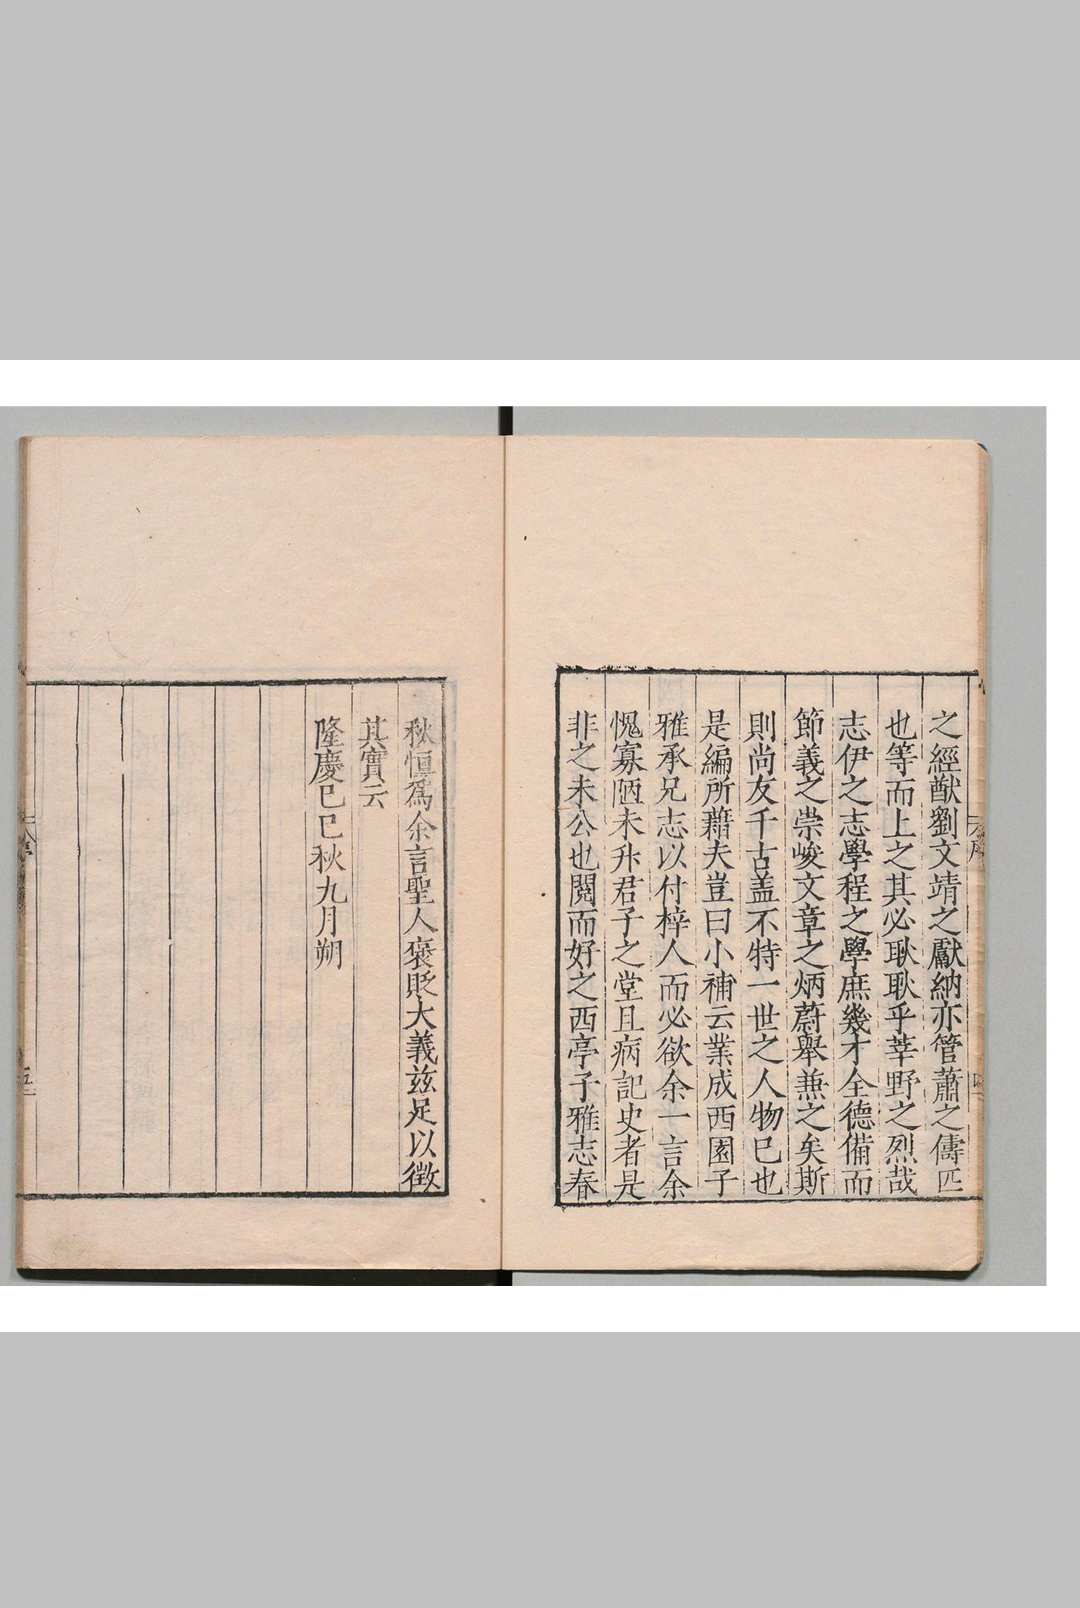 之經猷劉文靖之獻納亦管蕭之儔匹
也等而上之其必耿耿乎莘野之烈哉
志伊之志學程之學庶幾才全德備而
節義之崇峻文章之炳蔚舉兼之矣斯
則尚友千古盖不特一世之人物已也
是編所藉夫豈曰小補云業成西園子
雅承兄志以付梓人而必欲余一言余
愧寡陋未升君子之堂且病記史者是
非之未公也閱而好之西亭子雅志春
秋恒爲余言聖人褒貶大義兹足以徵
其實云
隆慶己巳秋九月朔